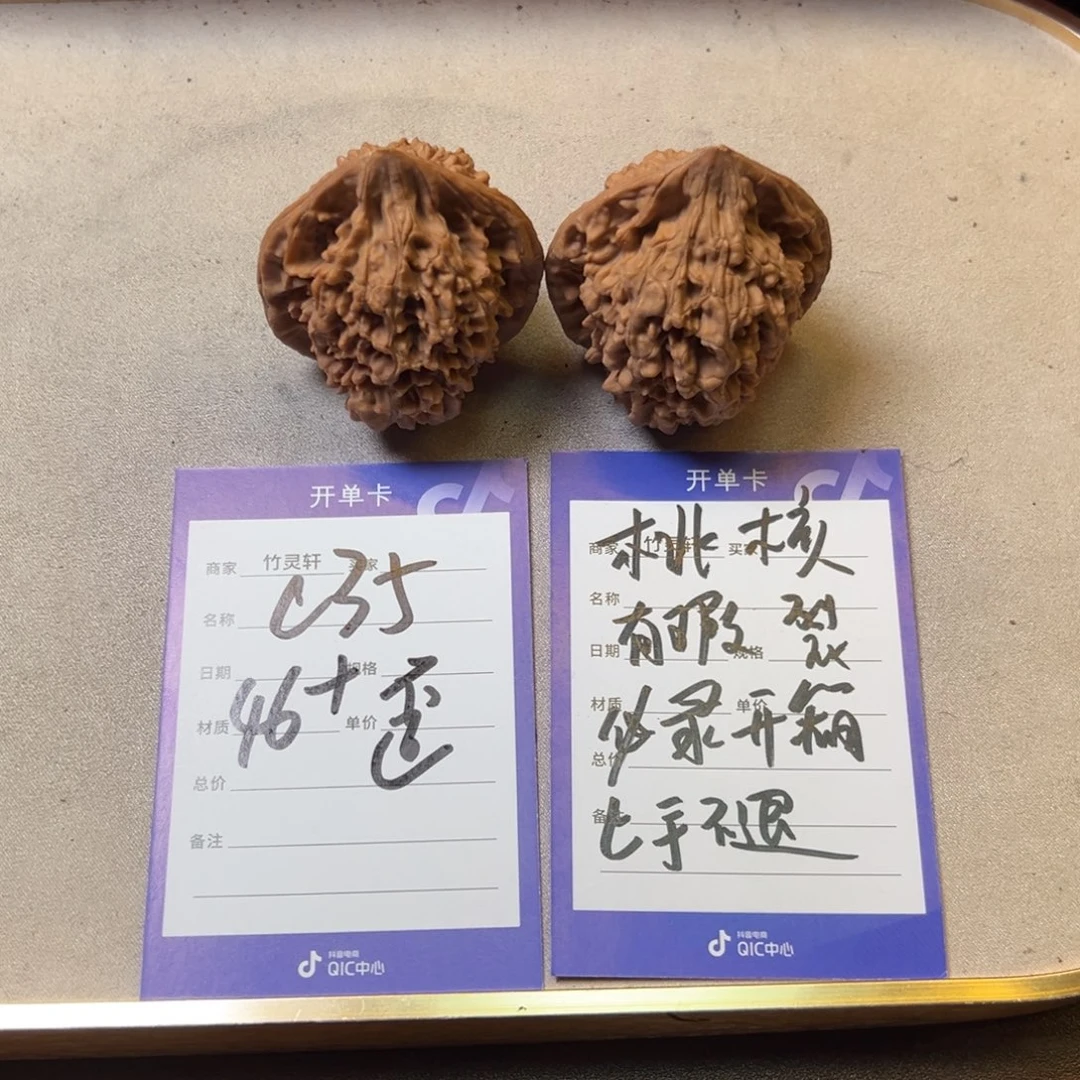 开单卡
商家 竹灵轩 买家
名称
日期 规格
材质 单价
总价
备注
46+歪
抖音电商
QIC中心
开单卡
商家 竹灵轩 买家
名称
日期 规格
材质 单价
总价
备注
桃核
有瑕 裂
必录开箱
上手不退
抖音电商
QIC中心